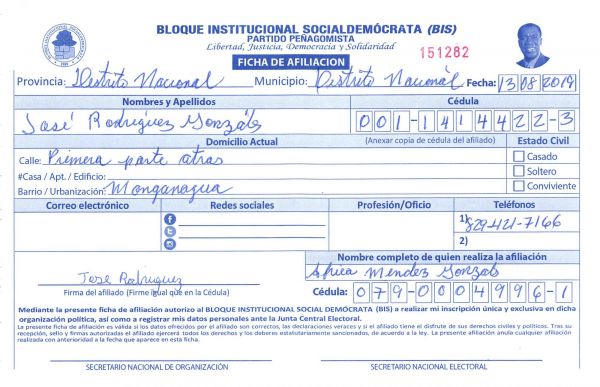 BLOQUE INSTITUCIONAL SOCIALDEMÓCRATA (BIS)
PARTIDO PEÑAGOMISTA
Libertad, Justicia, Democracia y Solidaridad
151282
FICHA DE AFILIACION
Provincia: Distrito Nacional Municipio: Distrito Nacional Fecha: 13/08/2019
Nombres y Apellidos Cédula
José Rodríguez Gonzáles 001-1414422-3
Domicilio Actual (Anexar copia de cédula del afiliado) Estado Civil
Calle: Primera parte atras Casado
#Casa / Apt. / Edificio: Soltero
Barrio / Urbanización: Monganagua Conviviente
Correo electrónico Redes sociales Profesión/Oficio Teléfonos
1) 829-421-7166
2)
Nombre completo de quien realiza la afiliación
Mendez Gonzals
Jose Rodriguez
Firma del afiliado (Firme igual que en la Cédula) Cédula: 079-0004996-1
Mediante la presente ficha de afiliación autorizo al BLOQUE INSTITUCIONAL SOCIAL DEMÓCRATA (BIS) a realizar mi inscripción única y exclusiva en dicha
organización política, así como a registrar mis datos personales ante la Junta Central Electoral.
La presente ficha de afiliación es válida si los datos ofrecidos por el afiliado son correctos, las declaraciones veraces y si el afiliado tiene el disfrute de sus derechos civiles y políticos. Tras su
recepción, sello y firma autorizadas el afiliado ejercerá todos los derechos y los deberes estatutariamente sancionados, de acuerdo a la ley. La presente afiliación anula cualquier afiliación
realizada con anterioridad a la fecha que aparece en esta ficha.
SECRETARIO NACIONAL DE ORGANIZACIÓN SECRETARIO NACIONAL ELECTORAL